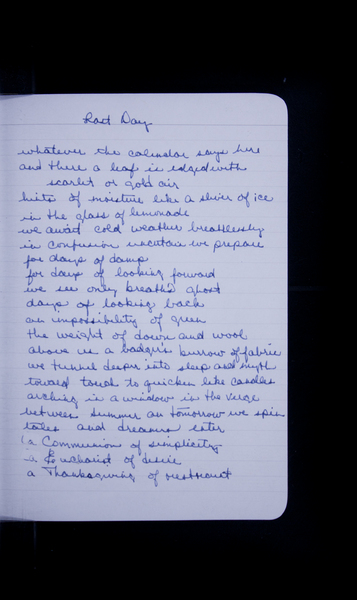 Last Day
whatever the calendar says here
and there a leaf is edged with
scarlet or gold air
hints of moisture like a sliver of ice
in the glass of lemonade
we await cold weather breathlessly
in confusion uncertain we prepare
for days of damp
for days of looking forward
we see only breath's ghost
days of looking back
an impossibility of green
the weight of down and wool
above us a badger's burrow of fabric
we tunnel deeper into sleep and myth
toward touch to quicken like candles
arching in a window in the verge
between summer an tomorrow we spin
tales and dreams enter
a Communion of simplicity
a Eucharist of desire
a Thanksgiving of restraint